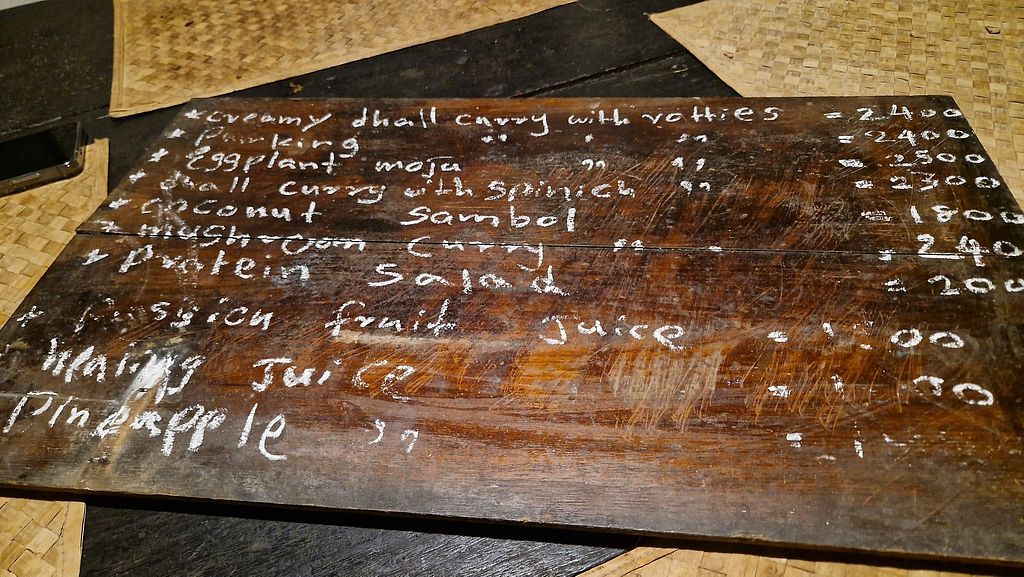 * creamy dhall curry with rotties = 2400
* Pumking " " " = 2400
* Eggplant moja " " = 2500
* dhall curry with spinich " = 2300
* coconut sambol = 1800
* mushroom curry " " = 240
* protein salad = 200
* passion fruit juice
* healing Juice
pineapple "